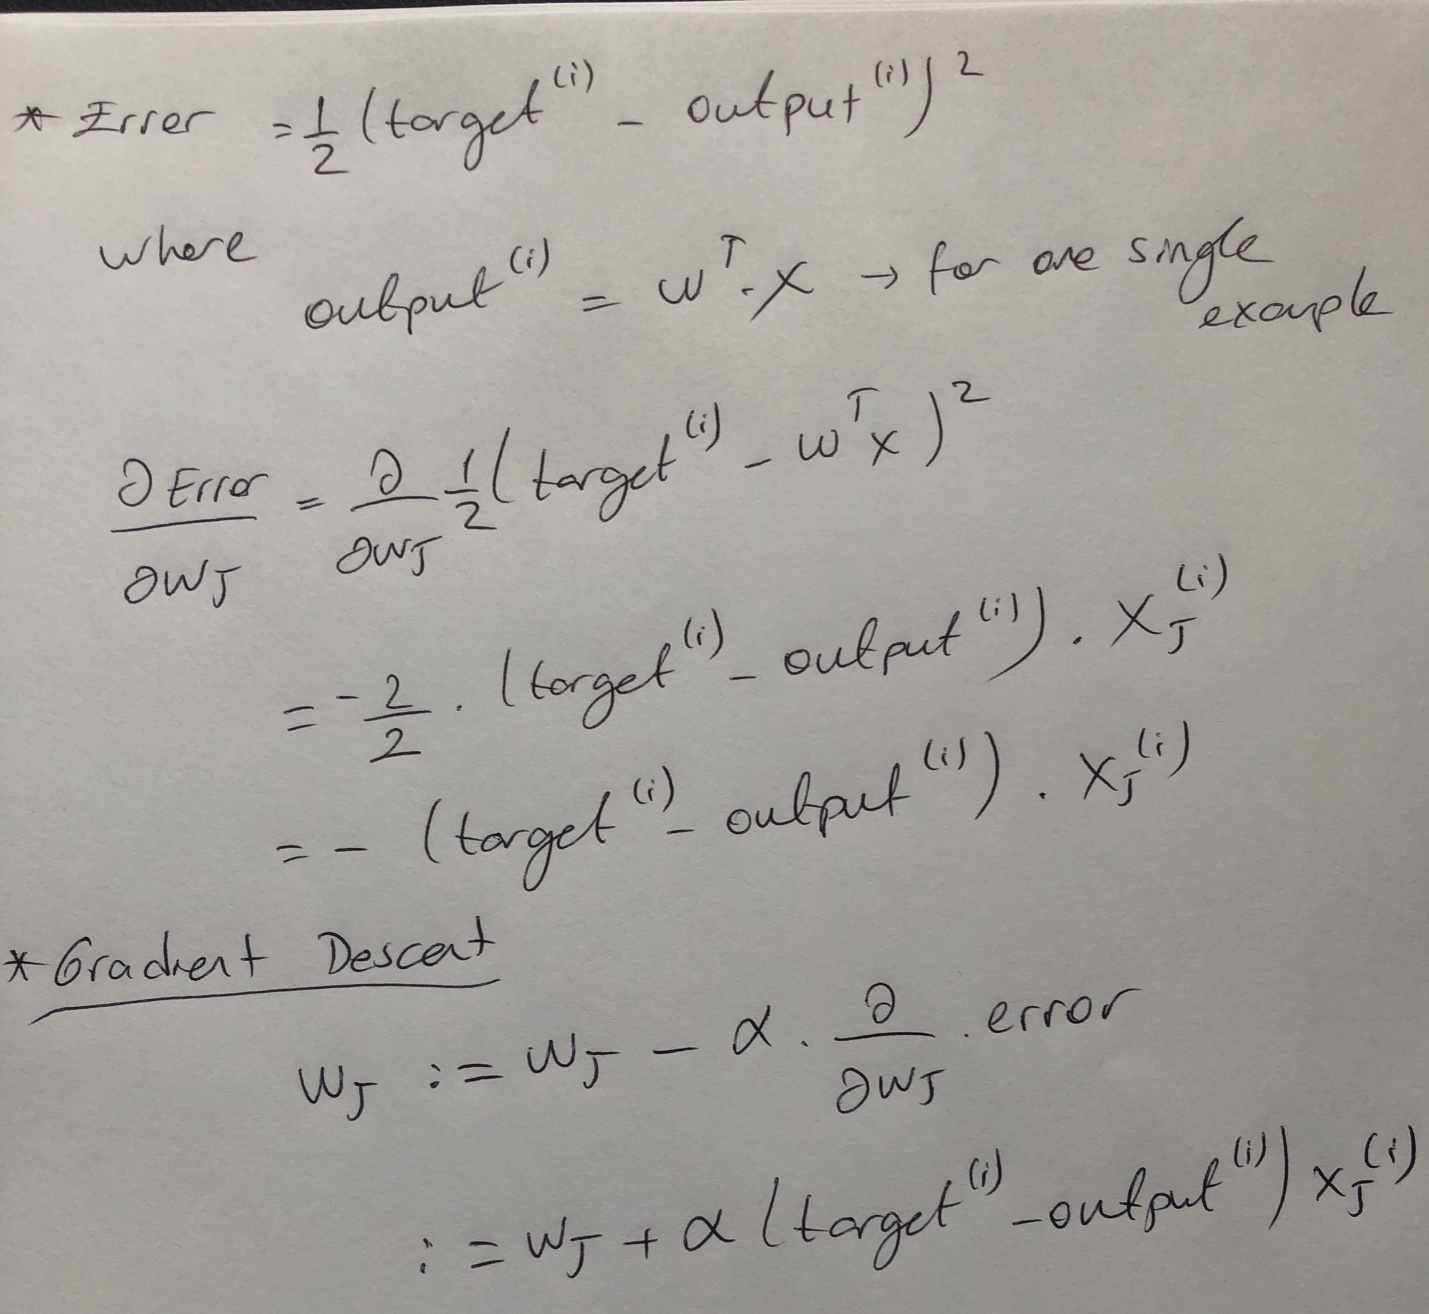 * Error = 1/2 (target^(i) - output^(i))^2
where
output^(i) = w^T . x → for one single example
∂ Error/∂w_J = ∂/∂w_J 1/2 (target^(i) - w^T x)^2
= - 2/2 . (target^(i) - output^(i)) . x_J^(i)
= - (target^(i) - output^(i)) . x_J^(i)
* Gradient Descent
w_J := w_J - α . ∂/∂w_J . error
:= w_J + α (target^(i) - output^(i)) x_J^(i)